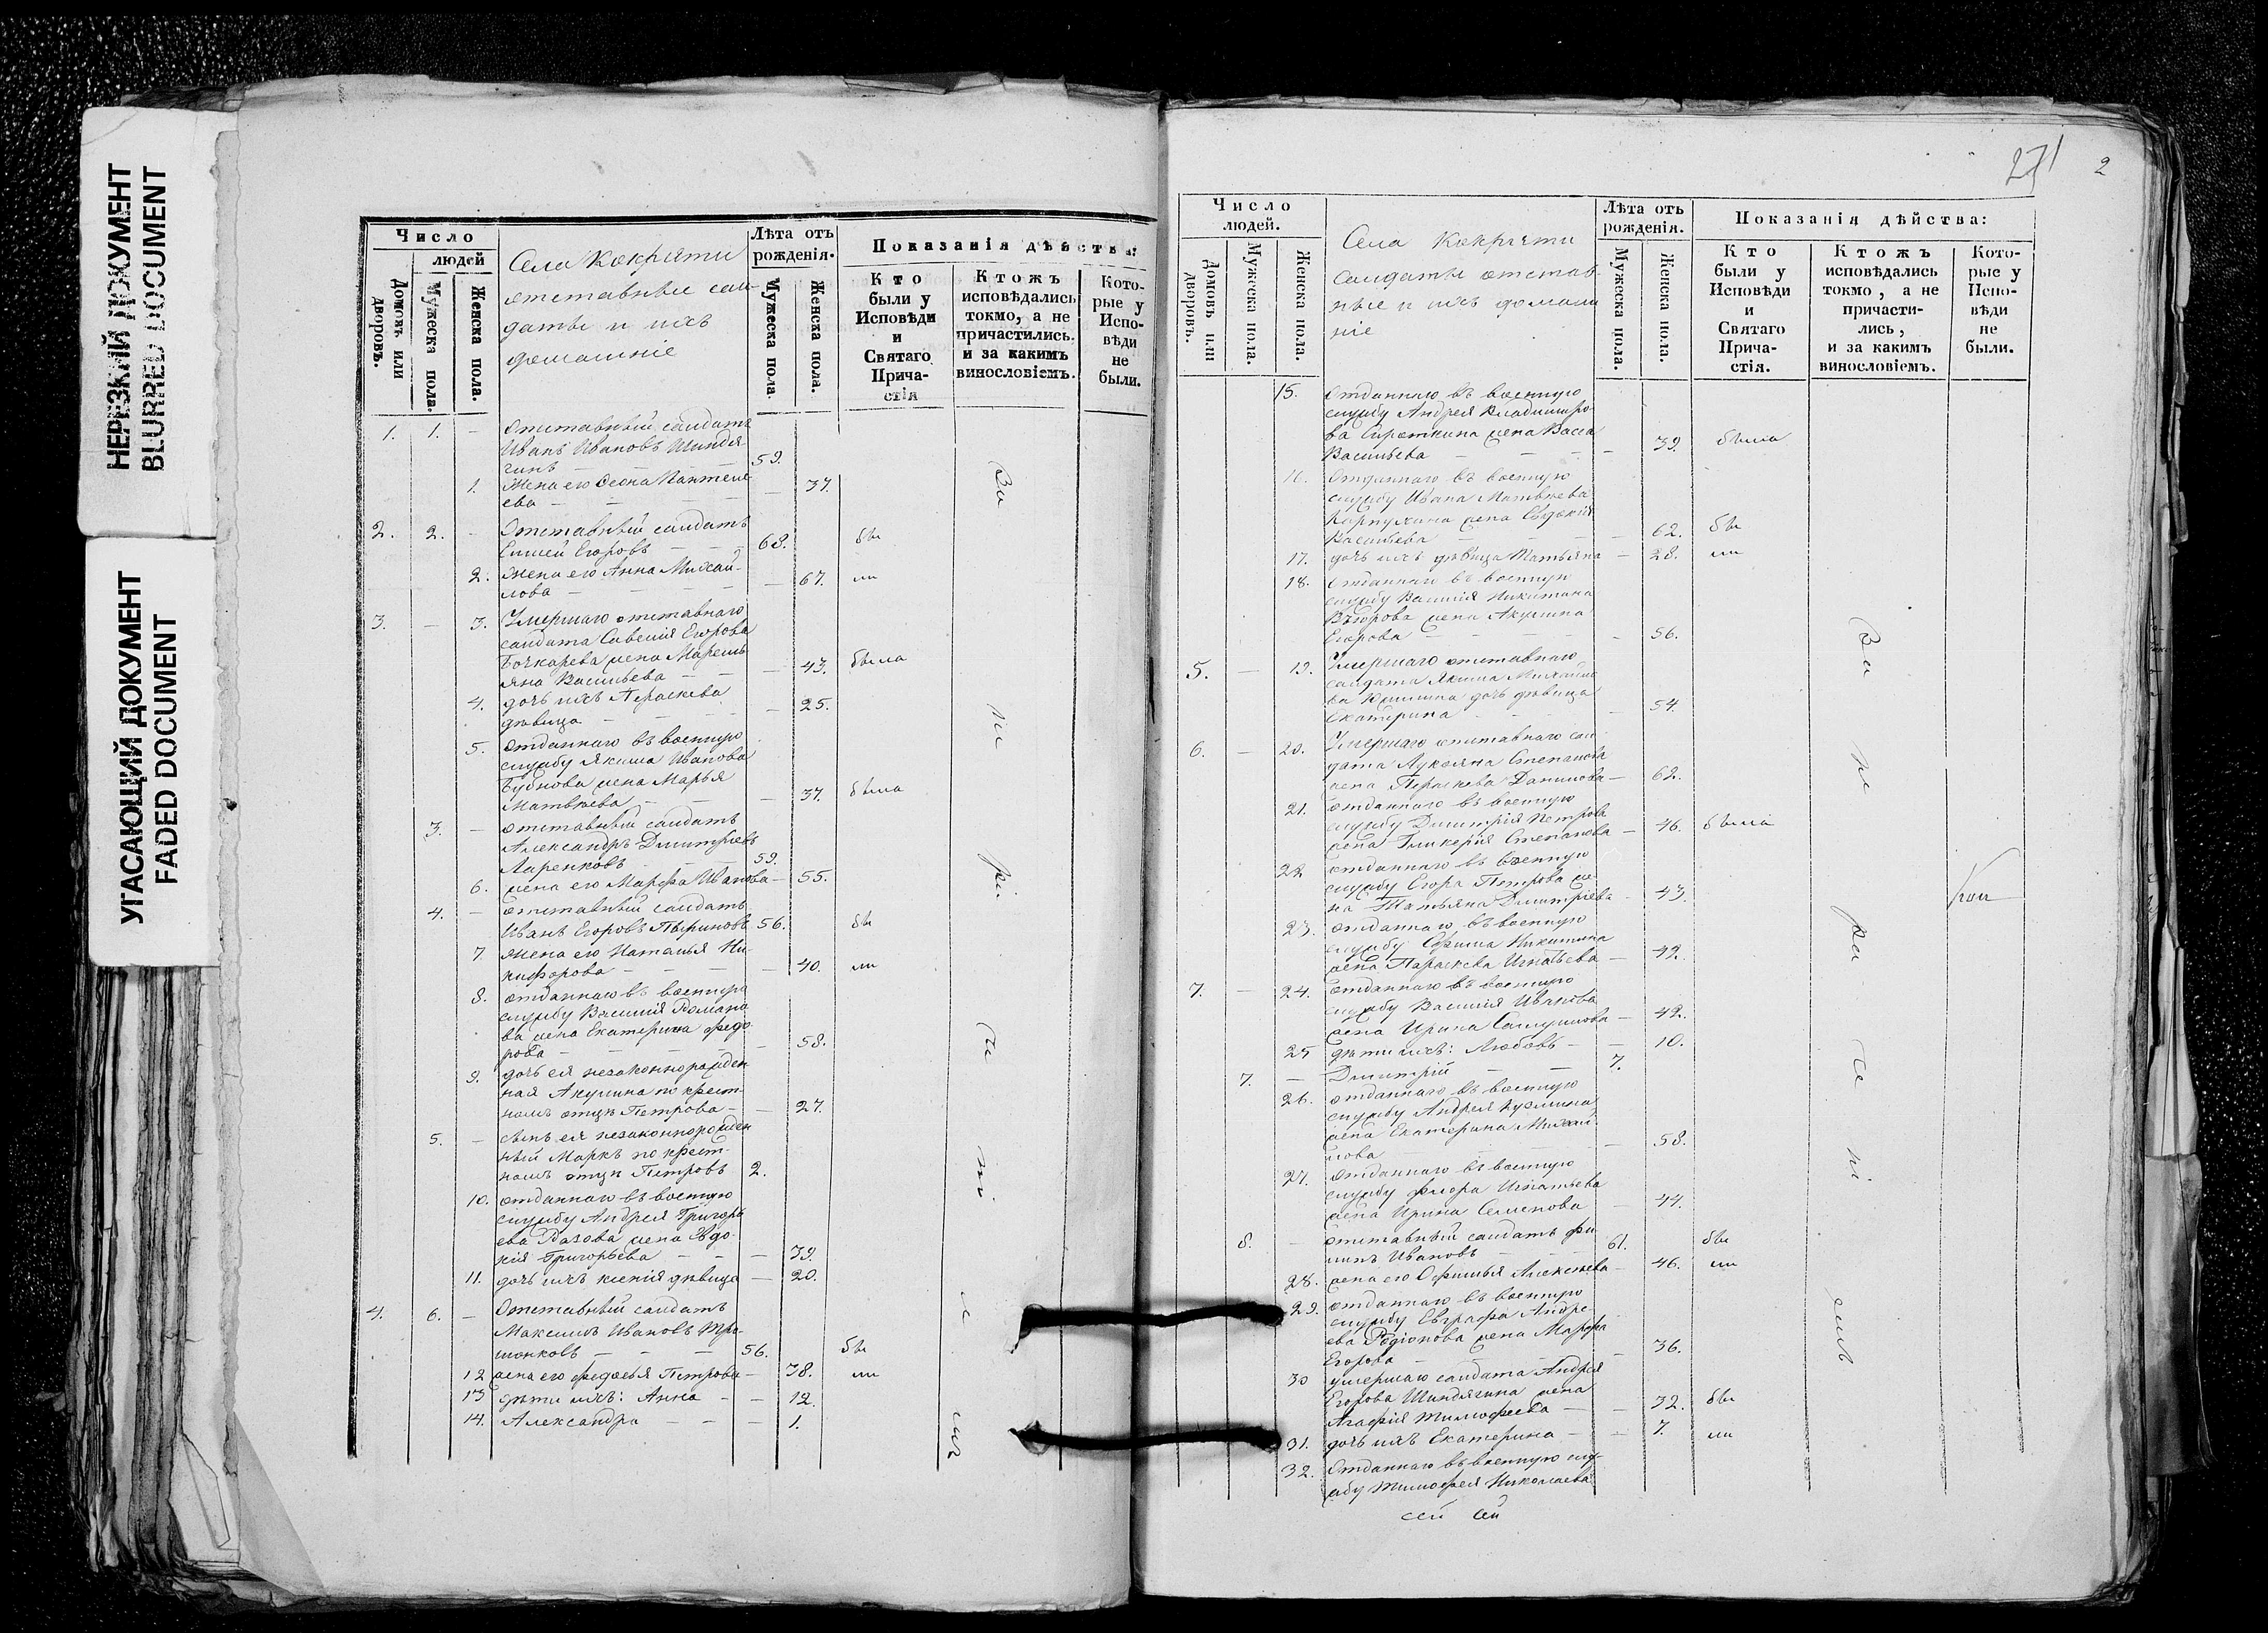 НЕРЕЗКИЙ ДОКУМЕНТ
BLURRED DOCUMENT
УГАСАЮЩИЙ ДОКУМЕНТ
FADED DOCUMENT
Число
людей
Домовъ или дворовъ.
Мужеска пола.
Женска пола.
Села Кокряти
отставные сол-
даты и ихъ
домашніе
Лѣта отъ
рожденія.
Мужеска пола.
Женска пола.
Показанія дѣйства:
Кто
были у
Исповѣди
и
Святаго
Прича-
стія
Ктожъ
исповѣдались
токмо, а не
причастились.
и за какимъ
винословіемъ.
Кото-
рые у
Испо-
вѣди
не
были.
1. 1. – отставный солдатъ
Иванъ Ивановъ Шиндя
гинъ – – 59.
1. Жена его Пантеле
ева – – – 37.
2. 2. – Отставный солдатъ
Елисей Егоровъ – – 68. бы
2. Жена его Анна Михай-
лова – – – 67. ли
3. – 3. Умершаго отставнаго
солдата Савелія Егорова
Бочкарева жена Маремь
яна Васильева – – 43. была
4. дочь ихъ Параскева
дѣвица – – – 25.
5. отданнаго въ военную
службу Якима Иванова
Бубнова жена Марья
Матвѣева – – – 37. была
3. – отставный солдатъ
Александръ Дмитріевъ
Ларенковъ – – 59.
6. жена его Марфа Иванова – 55.
4. – отставный солдатъ
Иванъ Егоровъ 56. бы
7. жена его Наталья Ни-
кифорова – – – 40. ли
8. отданнаго въ военную
службу Василія Романо
ва жена Екатерина Федо
рова – – – 58.
9. дочь ея незаконнорожден
ная Акулина по крест-
номъ отцѣ Петрова – – 27.
5. – сынъ ея незаконнорожден
ный Маркъ по крест-
номъ отцѣ Петровъ 2.
10. отданнаго въ военную
службу Андрея Григорь
ева жена Евдо-
кія Григорьева – – – 39.
11. дочь ихъ Ксенія дѣвица – 20.
4. 6. – Отставный солдатъ
Максимъ Ивановъ Тро-
шонковъ – – – 56. бы
12 жена его Федосья Петрова – 38. ли
13 дѣти ихъ: Анна – – 12.
14. Александра – – – 1.
271 2
Число
людей.
Домовъ или дворовъ.
Мужеска пола.
Женска пола.
Села Кокряти
солдаты отстав-
ные и ихъ домаш
ніе
Лѣта отъ
рожденія.
Мужеска пола.
Женска пола.
Показанія дѣйства:
Кто
были у
Исповѣди
и
Святаго
Прича-
стія.
Ктожъ
исповѣдались
токмо, а не
причасти-
лись,
и за какимъ
винословіемъ.
Кото-
рые у
Испо-
вѣди
не
были.
15. отданнаго въ военную
службу Андрея Владиміро-
ва Сироткина жена Васса
Васильева – – – – 39. была
16. отданнаго въ военную
службу Ивана Матвѣева
жена Евдокія
Васильева – – – 62. бы
17. дочь ихъ дѣвица Татьяна – 28. ли
18. отданнаго въ военную
службу Василія Никитина
жена Акулина
Егорова – – – 56.
5. – 19. Умершаго отставнаго
солдата Якима Михайло
ва дочь дѣвица
Екатерина – – – 54.
6. – 20. Умершаго отставнаго сол
дата Лукьяна Степанова
жена Параскева Данилова – 62.
21. отданнаго въ военную
службу Дмитрія Петрова
жена Гликерія Степанова – 46. была
22 отданнаго въ военную
службу Егора Петрова же-
на Татьяна Дмитріева – 43.
23. отданнаго въ военную
службу Ефима Никитина
жена Параскева Игнатьева – 42.
7. – 24. отданнаго въ военную
службу Василія Иванова
жена Ирина Самуилова – 42.
25 дѣти ихъ: Любовь – – 10.
7. – Дмитрій – – 7.
26. отданнаго въ военную
службу Андрея Кузмина
жена Екатерина Михай-
лова – – – 58.
27. отданнаго въ военную
службу Флора Игнатьева
жена Ирина Семенова – 44.
8. – отставный солдатъ Фи
липъ Ивановъ – – 61. бы
28. жена его Офимья Алексѣева – 46. ли
29. отданнаго въ военную
службу Евграфа Андре-
ева Родіонова жена Марфа
Егорова – – – 36.
30 умершаго солдата Андрея
Егорова Шиндягина жена
Агафія Тимофеева – – 32. бы
31. дочь ихъ Екатерина – – 7. ли
32. Отданнаго въ военную слу-
жбу Тимофея Николаева